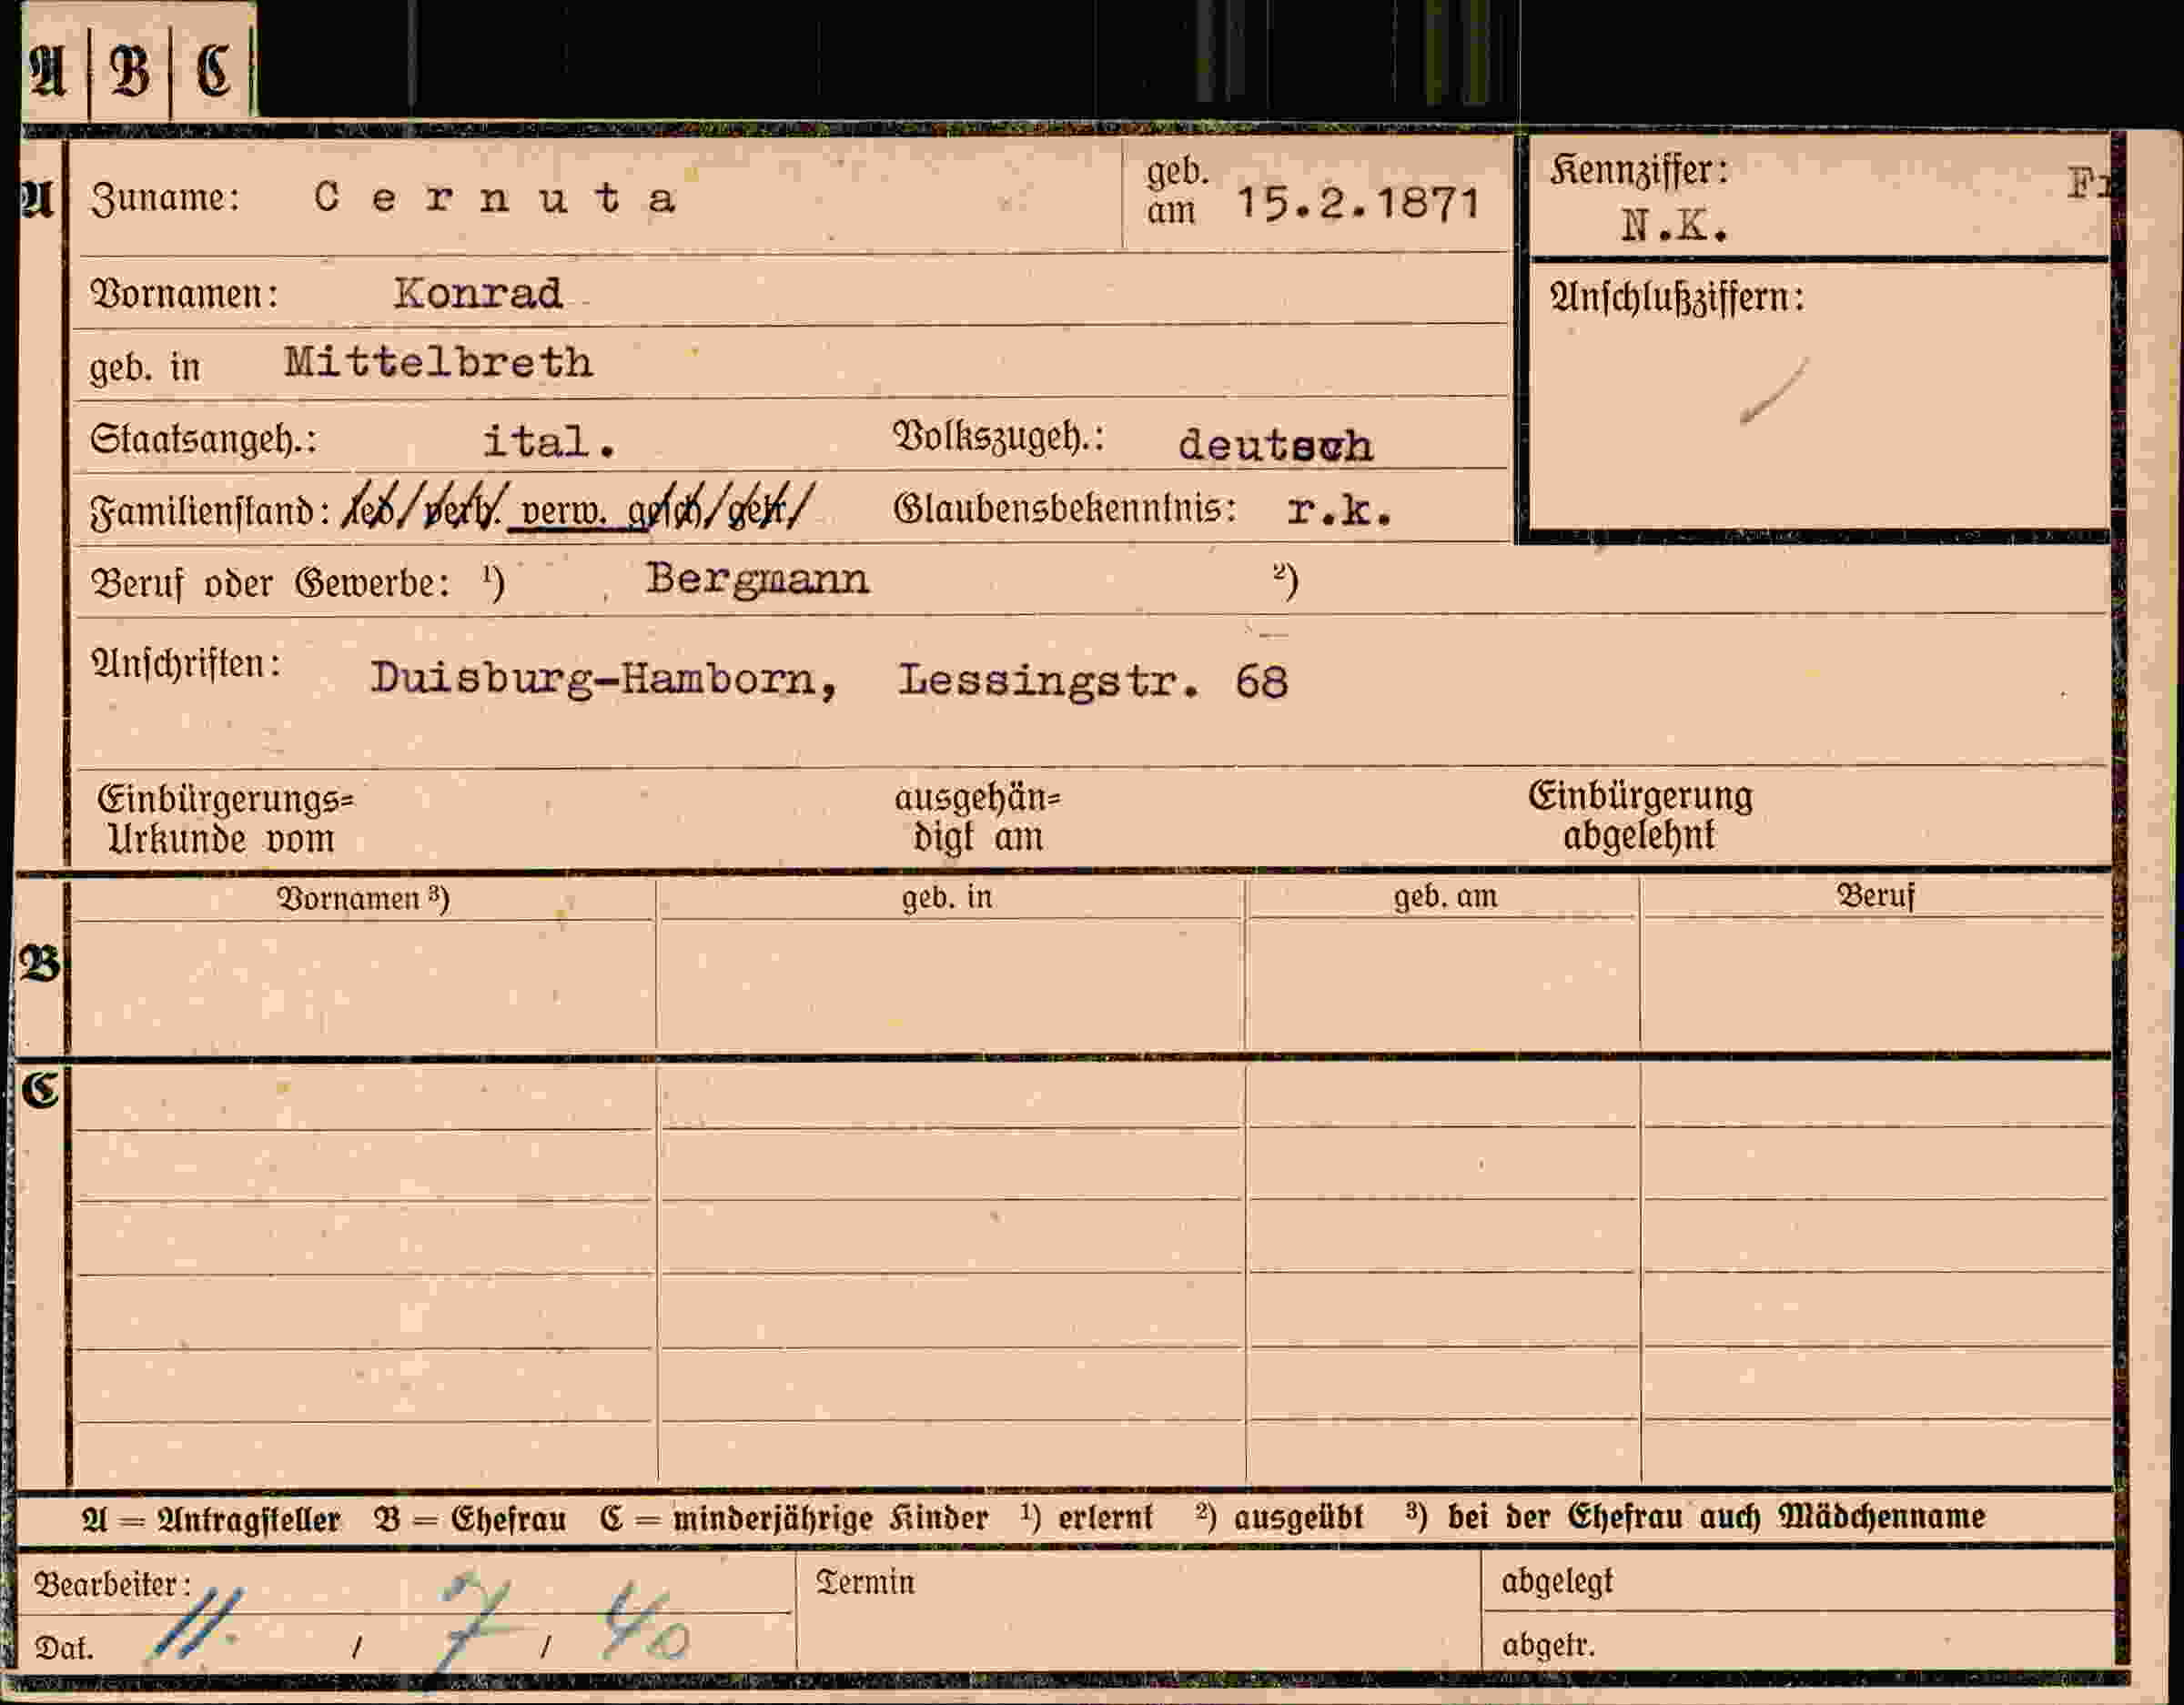 A B C
A Zuname: Cernuta geb. am 15.2.1871 Kennziffer: N.K.
Vornamen: Konrad
geb. in Mittelbreth Anschlußziffern:
Staatsangeh.: ital. Volkszugeh.: deutsch
Familienstand: led/verh. verw. gesch/getr/ Glaubensbekenntnis: r.k.
Beruf oder Gewerbe: ¹) Bergmann ²)
Anschriften: Duisburg-Hamborn, Lessingstr. 68
Einbürgerungs= ausgehän= Einbürgerung
Urkunde vom digt am abgelehnt
Vornamen ³) geb. in geb. am Beruf
B
C
A = Antragsteller B = Ehefrau C = minderjährige Kinder ¹) erlernt ²) ausgeübt ³) bei der Ehefrau auch Mädchenname
Bearbeiter: Termin abgelegt
Dat. 11. / 7 / 40 abgetr.